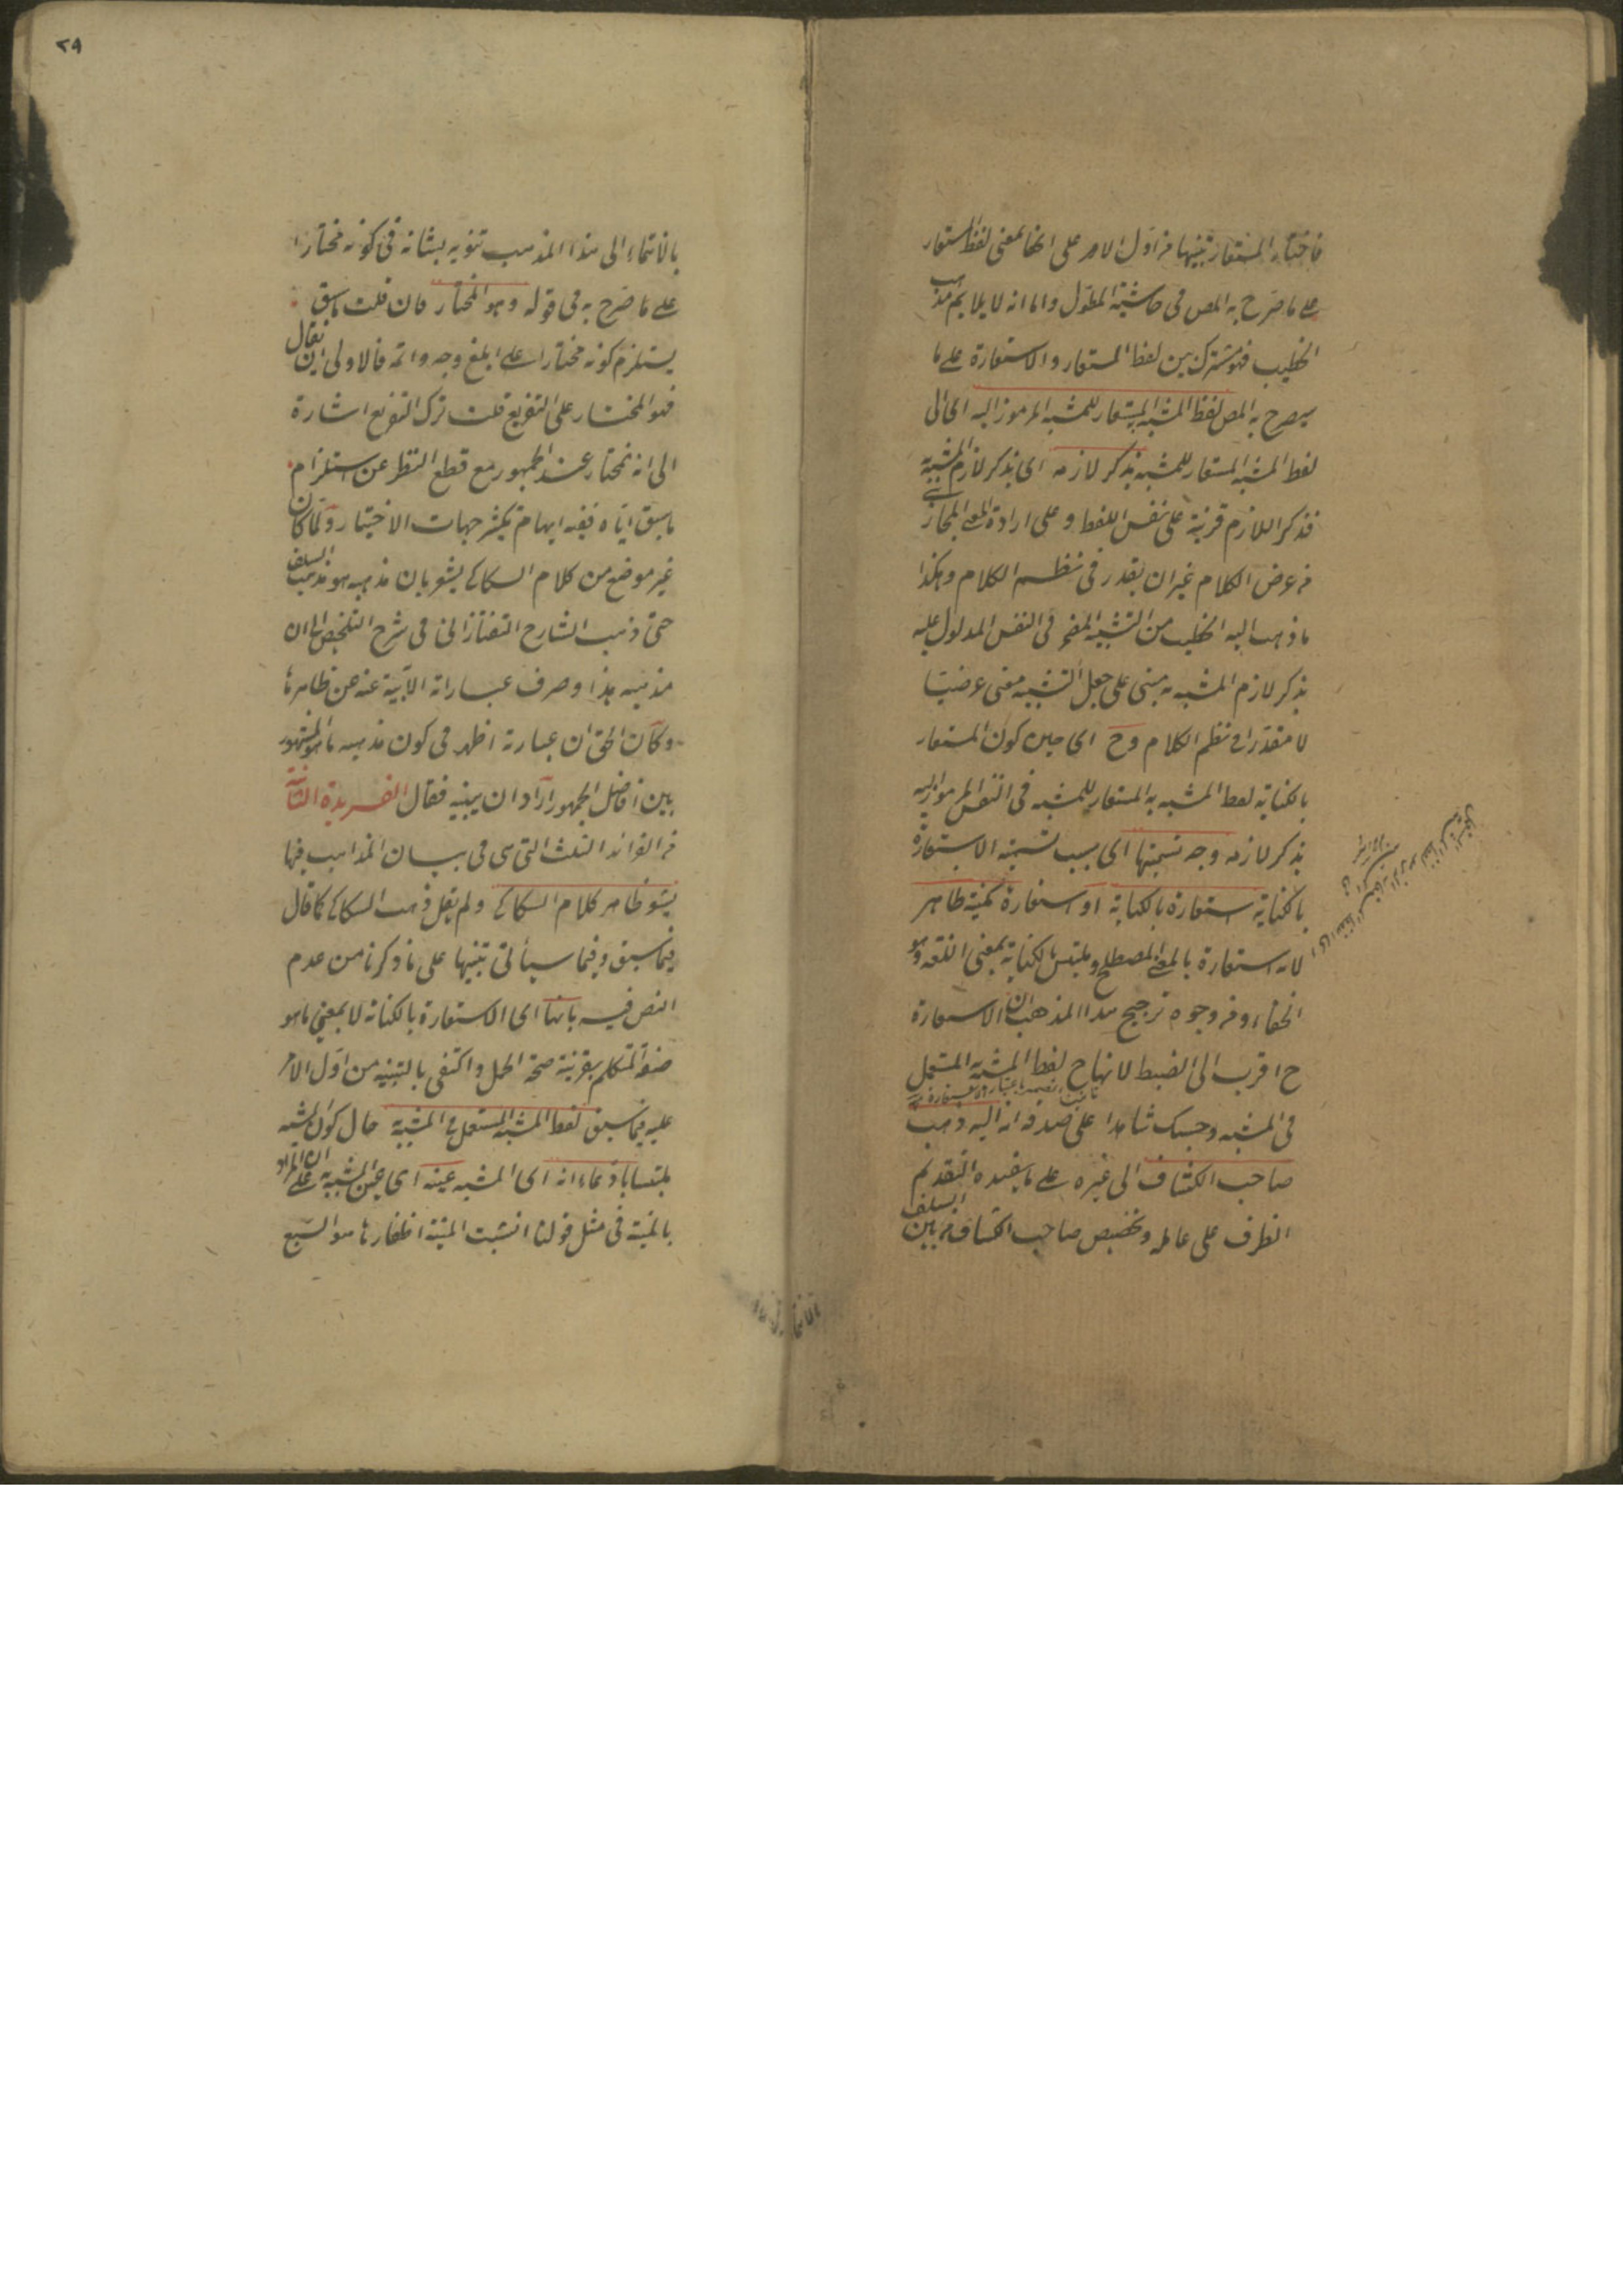 فاختار المستعار تنبيها من اول الامر على انها بمعنى لفظ المستعار
على ما صرح به المص في حاشية المطول واما انه لا يلايم مذهب
الخطيب فهو مشترك بين لفظ المستعار والاستعارة على ما
سيصرح به المص لفظ المشبه به المستعار للمشبه المرموز اليه اى الى
لفظ المشبه المستعار للمشبه بذكر لازمه اى بذكر لازم المشبه به
فذكر اللازم قرينة على نفس اللفظ وعلى ارادة المعنى المجازى
من عرض الكلام غير ان يقدر في نظم الكلام وهكذا
ما ذهب اليه الخطيب من التشبيه المضمر في النفس المدلول عليه
بذكر لازم المشبه به مبنى على جعل التشبيه معنى عرضيا
لا مقدرا في نظم الكلام وح اى حين كون المستعار
بالكناية لفظ المشبه به المستعار للمشبه في النفس المرموز اليه
بذكر لازمه وجه تسميتها اى بسبب تسمية الاستعارة
بالكناية استعارة بالكناية او استعارة مكنية ظاهر
لانه استعارة بالمعنى المصطلح وملتبس بالكناية بمعنى اللغة وهو
الخفاء ومن وجوه ترجيح هذا المذهب ان الاستعارة
ح اقرب الى الضبط لانها ح لفظ المشبه به المستعمل
في المشبه وحسبك شاهدا على صدقه انه اليه ذهب
صاحب الكشاف الى غيره على ما يفيده التقديم
الظرف على عامله وتخصيص صاحب الكشاف من بين السلف
٢٩
بالانتماء الى هذا المذهب تنويه بشانه في كونه مختارا
على ما صرح به في قوله وهو المختار فان قلت ما سبق
يستلزم كونه مختارا على ابلغ وجه واتمه فالاولى ان يقال
فهو المختار على التفريع قلت ترك التفريع اشارة
الى انه مختار عند الجمهور مع قطع النظر عن استلزام
ما سبق اياه ففيه ايهام تكثر جهات الاختيار ولما كان
غير موضع من كلام السكاكى يشعر بان مذهبه هو مذهب السلف
حتى ذهب الشارح التفتازانى في شرح التلخيص الى ان
مذهبه هذا وصرف عباراته الآبية عنه عن ظاهرها
وكان الحق ان عبارته اظهر في كون مذهبه ما هو المشهور
بين افاضل الجمهور اراد ان يبينه فقال الفريدة الثانية
من الفرائد الثلث التى هى في بيان المذاهب فيما
يشعر ظاهر كلام السكاكى ولم يقل ذهب السكاكى كما قال
فيما سبق وفيما سيأتى تنبيها على ما ذكرنا من عدم
النص فيه بانها اى الاستعارة بالكناية لا بمعنى ما هو
صفة المتكلم بقرينة صحة الحمل واكتفى بالتنبيه من اول الامر
عليه فيما سبق لفظ المشبه المستعمل في المشبه به حال كون المشبه
ملتبسا بادعاء انه اى المشبه عينه اى عين المشبه به على ان المراد
بالمنية في مثل قولنا انشبت المنية اظفارها هو السبع